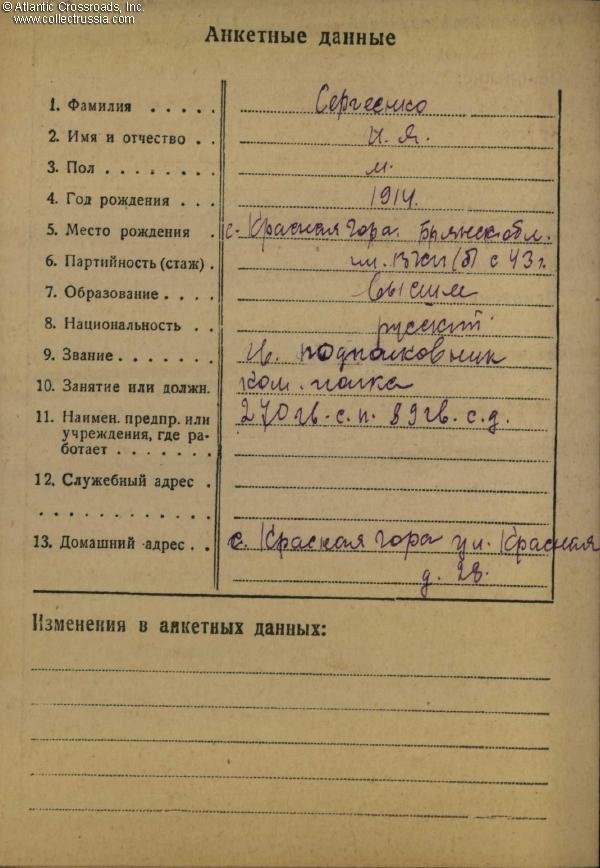 © Atlantic Crossroads, Inc.
www.collectrussia.com
Анкетные данные
1. Фамилия . . . . . Сергеенко
2. Имя и отчество . . И. Я.
3. Пол . . . . . . . . м.
4. Год рождения . . . 1914.
5. Место рождения . с. Красная гора. Брянск. обл.
6. Партийность (стаж) . чл. ВКП(б) с 43 г.
7. Образование . . . . высшее
8. Национальность . . русский
9. Звание . . . . . . . Гв. подполковник
10. Занятие или должн. ком. полка
11. Наимен. предпр. или 270 гв. с. п. 89 гв. с. д.
учреждения, где ра-
ботает . . . . . . .
12. Служебный адрес .
. . . . . . . . . . . .
13. Домашний адрес . . с. Краская гора ул. Красная
д. 28.
Изменения в анкетных данных: